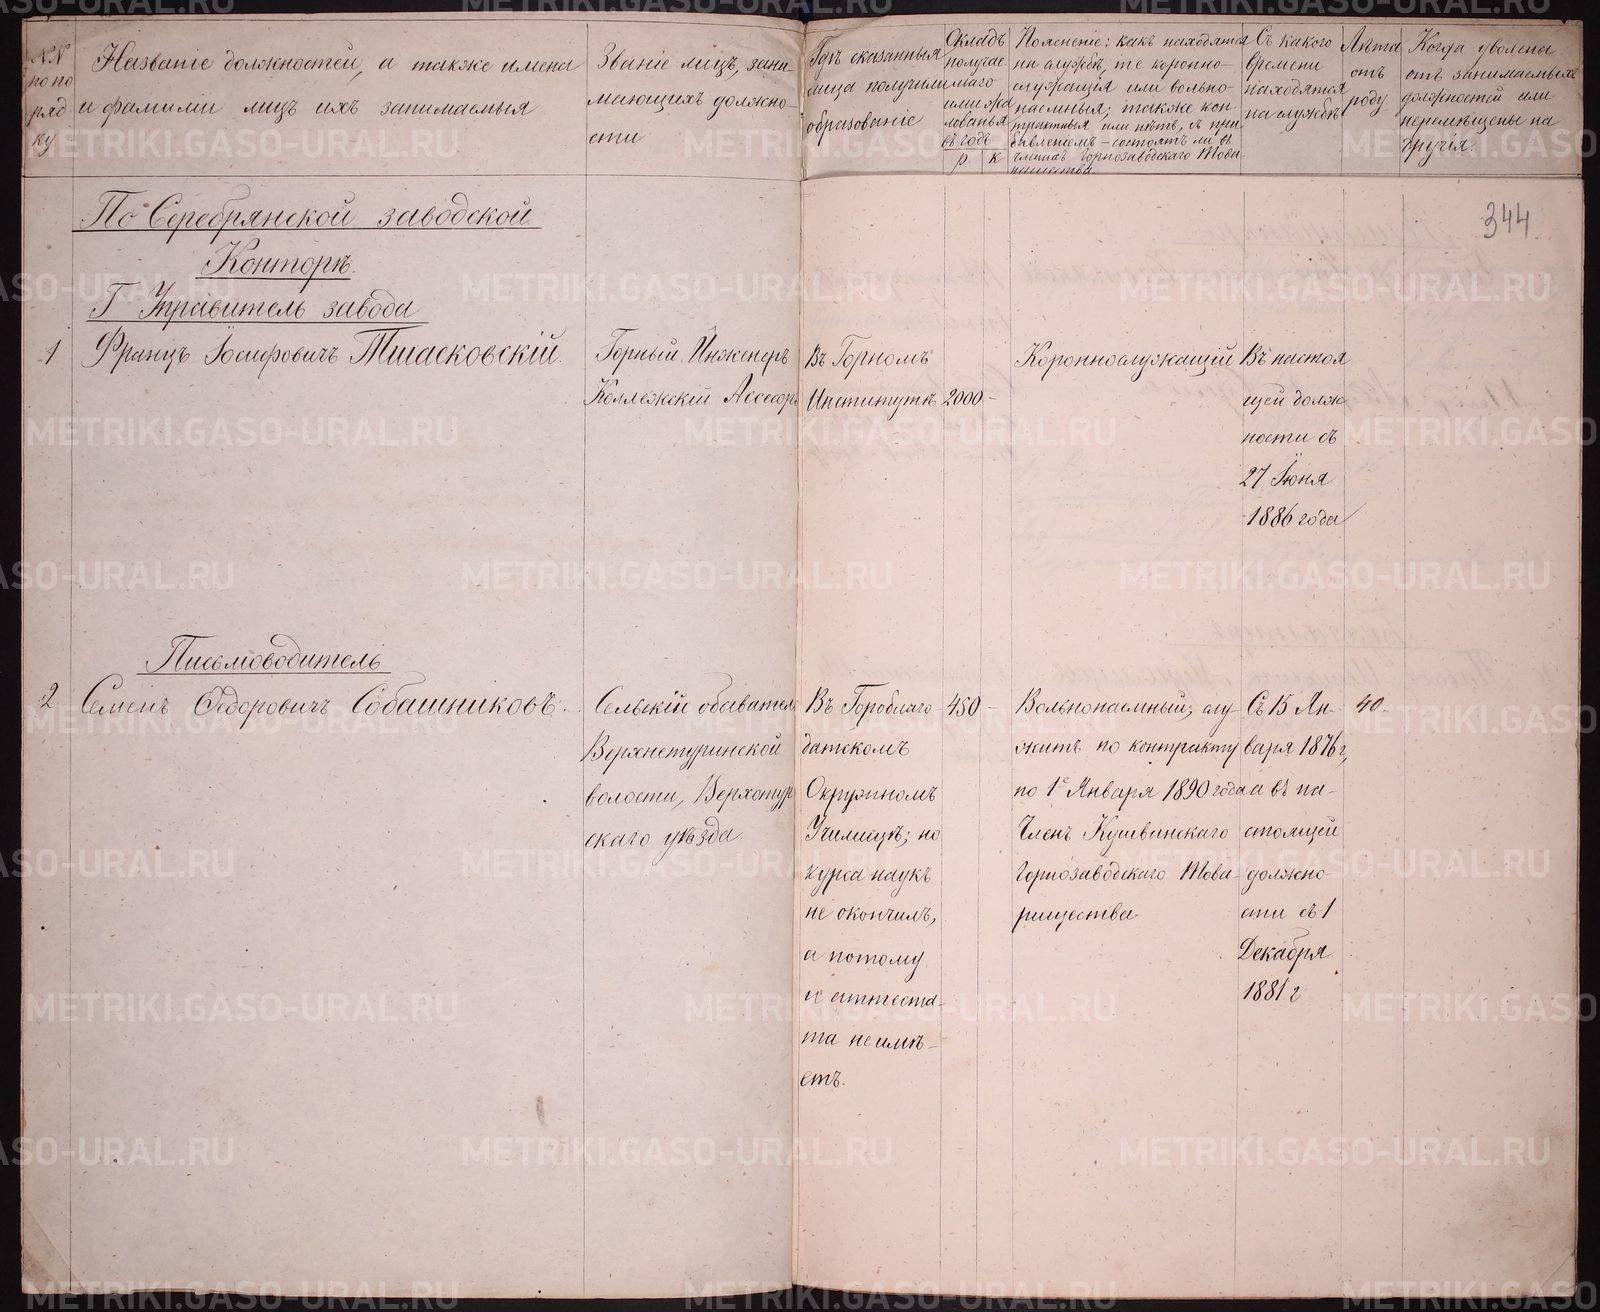 №№ по по ряд ку
Названіе должностей, а также имена
и фамиліи лицъ ихъ занимаемыя
Званіе лицъ, зани-
мающихъ должно-
сти
Гдѣ сказанныя
лица получили
образованіе
Окладъ
получае
маго
или жа
лованья
въ годъ
р к
Поясненіе: какъ находятся
на службѣ, те коронно-
служащія или вольно-
наемныя; также кон-
трактныя или нѣтъ, съ при
бавленіемъ – состоятъ ли въ
членахъ Горнозаводскаго Това
рищества.
Съ какого
времени
находятся
на службѣ
Лѣта
отъ
роду
Когда уволены
отъ занимаемыхъ
должностей или
перемѣщены на
другія.
344.
По Серебрянской заводской
Конторѣ.
Г Управитель завода
1 Францъ Іосифовичъ
Горный Инженеръ
Коллежскій Ассесоръ
Въ Горномъ
Институтѣ
2000 –
Короннослужащій
Въ настоя
щей долж
ности съ
27 Іюня
1886 года
Письмоводитель
2 Семенъ Ѳедоровичъ Собашниковъ.
Сельскій обыватель
Верхнетуринской
волости, Верхотур
скаго уѣзда.
Въ Гороблаго
датскомъ
Окружномъ
Училищѣ; но
курса наукъ
не окончилъ,
а потому
и аттеста-
та не имѣ-
етъ.
450 –
Вольнонаемный, слу-
житъ по контракту
по 1е Января 1890 года
Членъ Кушвинскаго
Горнозаводскаго Това-
рищества
Съ 15 Ян-
варя 1876 г,
а въ на-
стоящей
должно-
сти съ 1
Декабря
1881 г
40.
METRIKI.GASO-URAL.RU